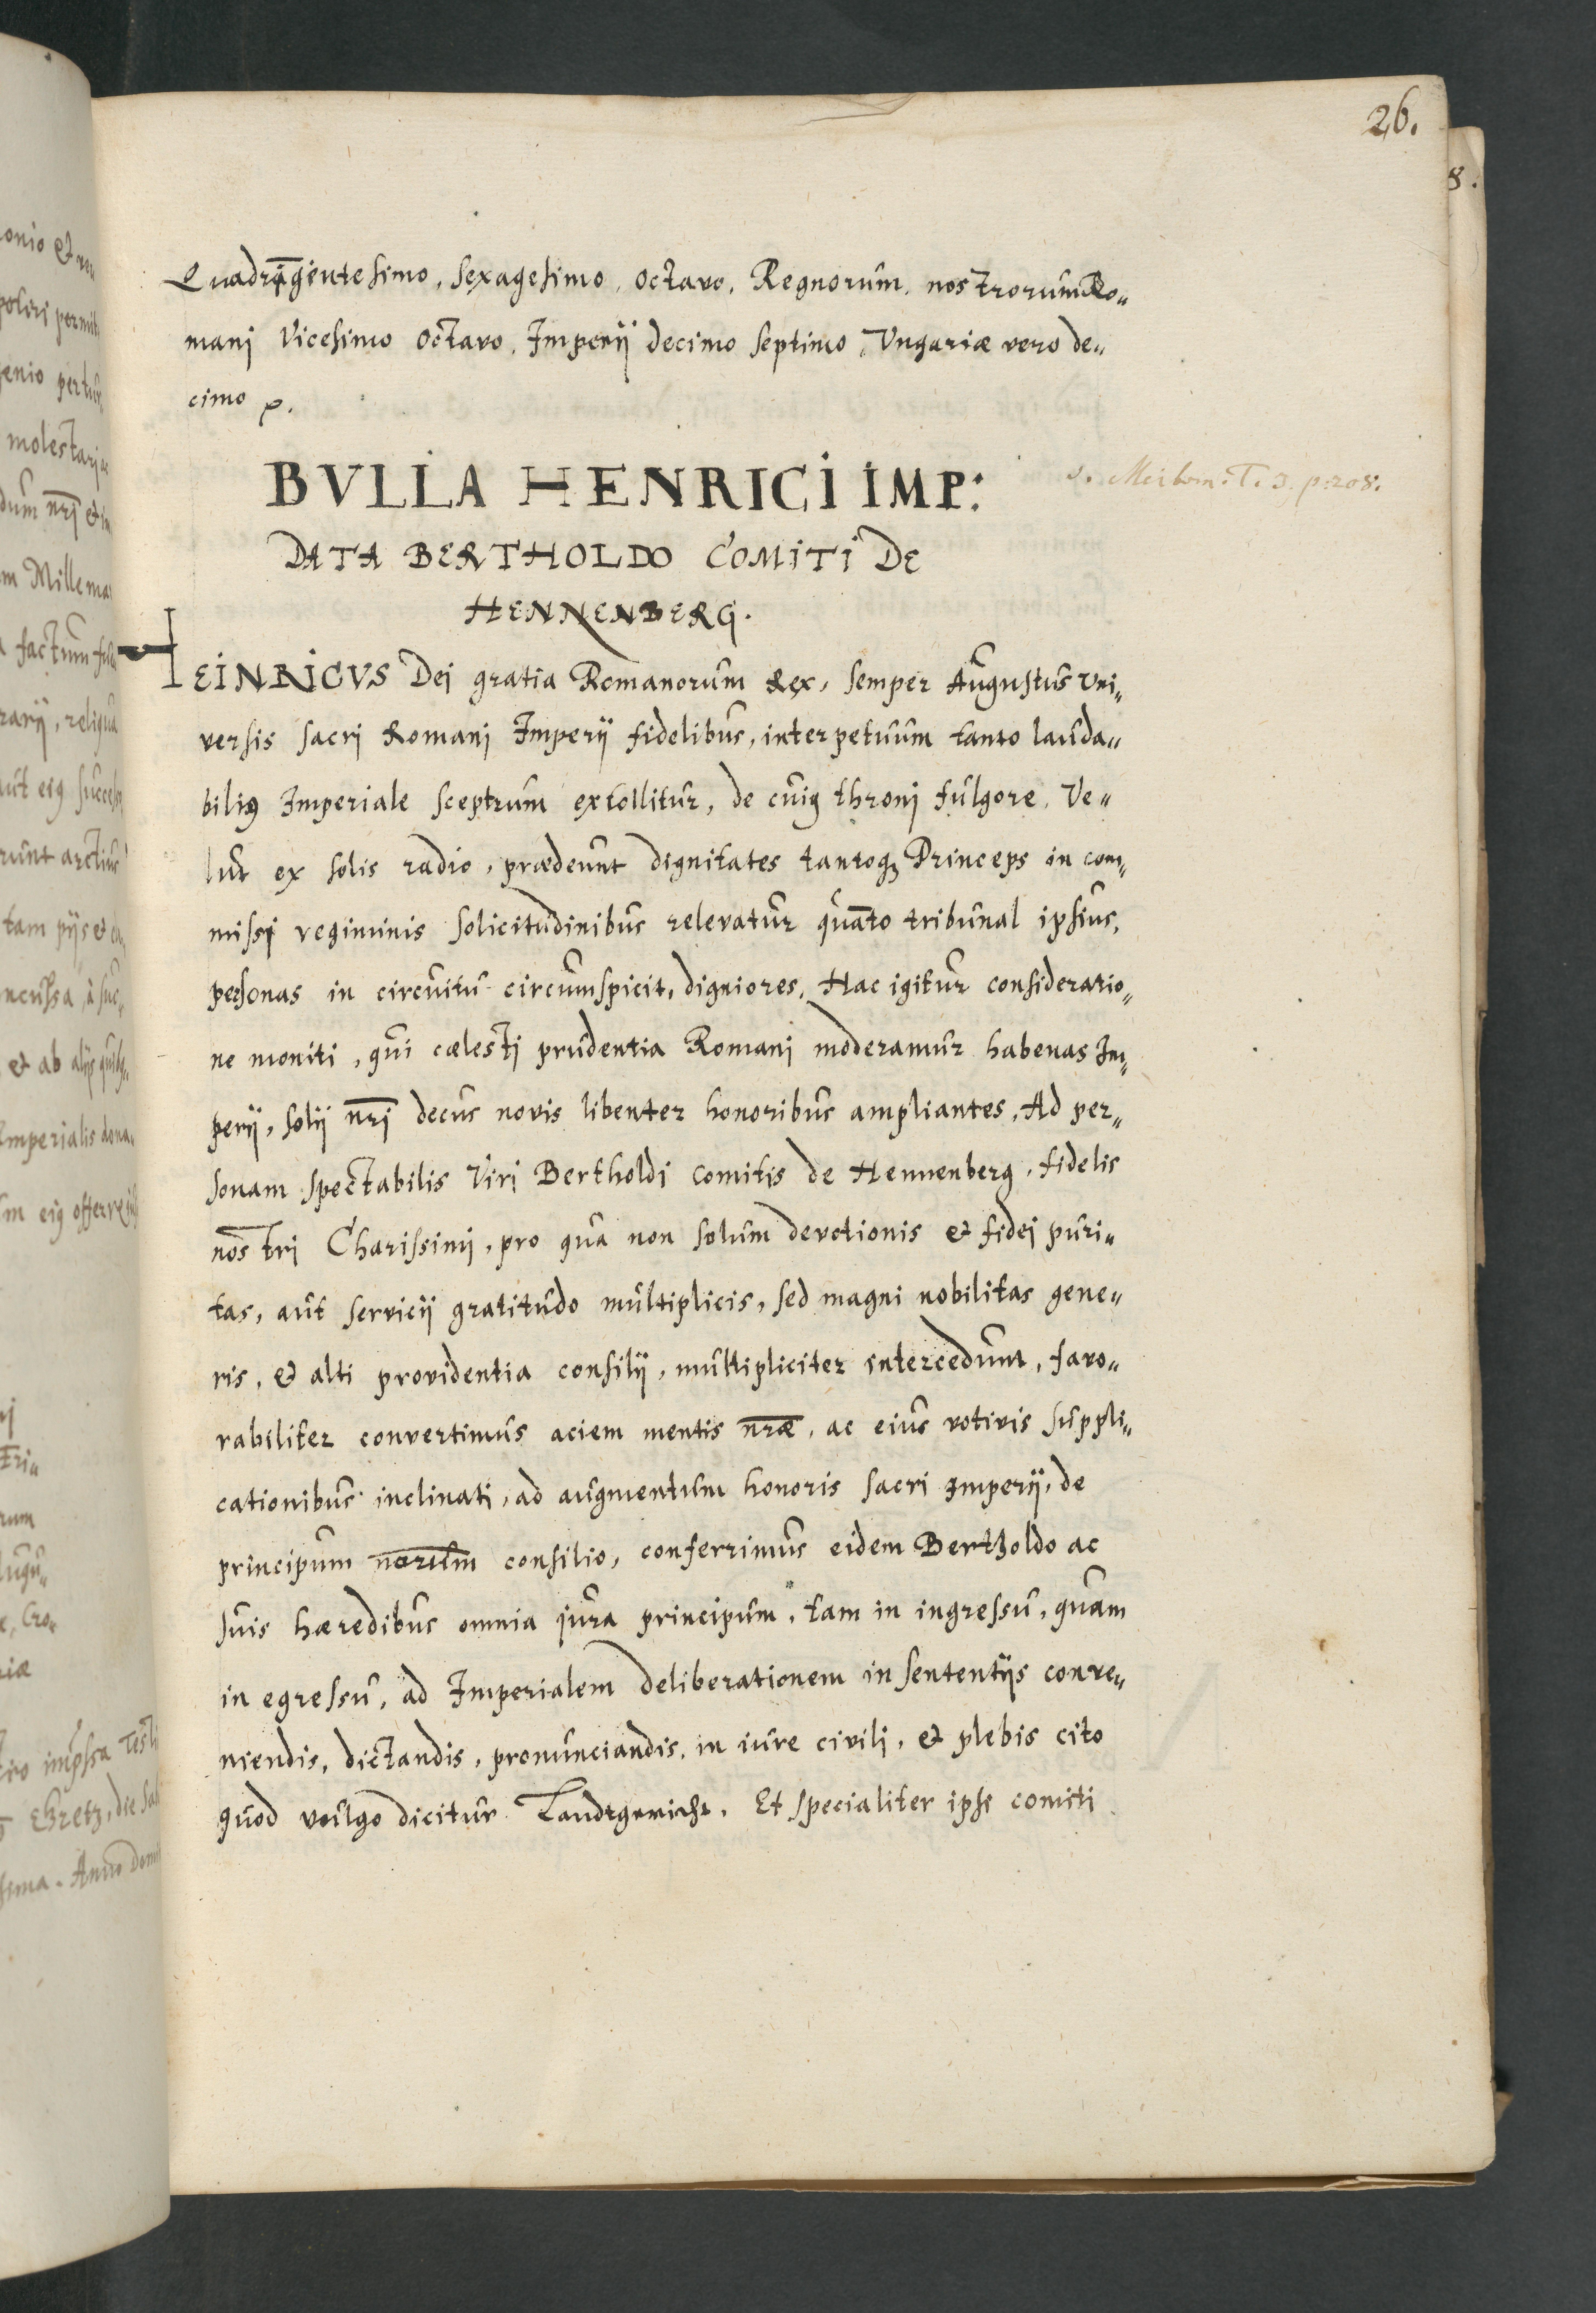 26.
8.
Quadrĩgentesimo, sexagesimo, octavo, Regnorum, nostrorum Ro„
manj Vicesimo octavo, Imperij decimo septimo, Vngariæ vero de„
cimo
BVLLA HENRICI IMP:
v. Meibom. T. 3. p. 208.
DATA BERTHOLDO COMITI DE
HENNENBERG.
HEINRICVS Dej gratia Romanorum Rex, semper Augustus vni„
versis sacrj Romanj Imperij fidelibus, in perpetuum tanto lauda„
bilius Imperiale sceptrum extollitur, de cuius thronj fulgore, Ve„
lut ex solis radio, prædeunt dignitates tantoq3 Princeps in com„
missi regiminis solicitudinibus relevatur quãto tribunal ipsius,
personas in circuitu circumspicit, digniores, Hac igitur consideratio„
ne moniti, qui cælesti prudentia Romanj moderamur habenas Im„
perij, solij nr̃i decus novis libenter honoribus ampliantes, Ad per„
sonam spectabilis Virj Bertholdi comitis de Hennenberg, fidelis
nostri Charissimi, pro qua non solum devotionis et fidej puri„
tas, aut servicij gratitudo multiplicis, sed magni nobilitas gene„
ris, et alti providentia consilij, multipliciter intercedunt, favo„
rabiliter convertimus aciem mentis nr̃æ, ac eius votivis suppli„
cationibus inclinati, ad augmentum honoris sacri Imperij, de
principum nõrum consilio, conferrimus eidem Bertholdo ac
suis hæredibus omnia jura principum, tam in ingressu, quam
in egressu, ad Imperialem deliberationem in sententijs conve„
niendis, dictandis, pronunciandis, in iure civili, et plebis cito
quod vulgo dicitur Landtgericht, Et specialiter ipsi comiti